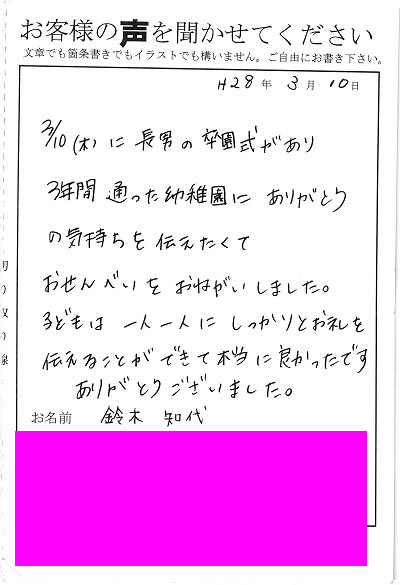 お客様の声を聞かせてください
文章でも箇条書きでもイラストでも構いません。ご自由にお書き下さい。
H28年 3月 10日
3/10(木)に長男の卒園式があり
3年間通った幼稚園にありがとう
の気持ちを伝えたくて
おせんべいをおねがいしました。
子どもは一人一人にしっかりとお礼を
伝えることができて本当に良かったです
ありがとうございました。
お名前 鈴木 知代